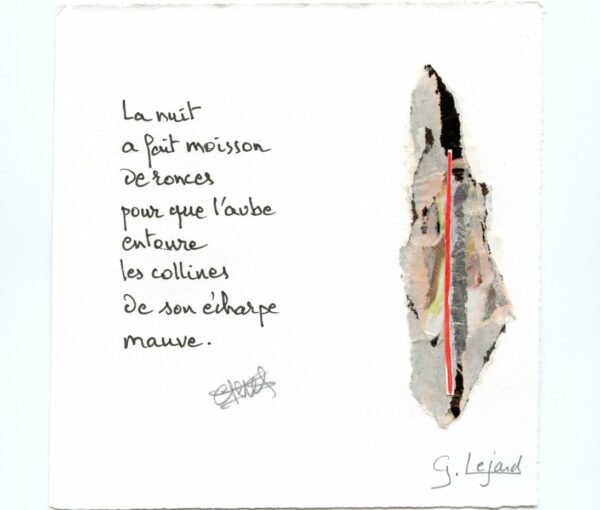 La nuit
a fait moisson
de ronces
pour que l'aube
entoure
les collines
de son écharpe
mauve.
G. Lejard